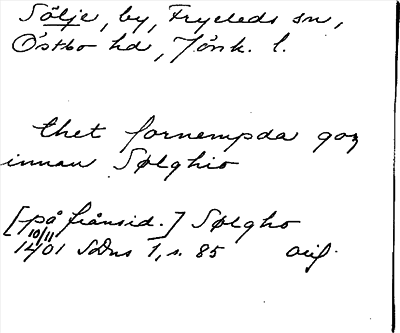 Sölje, by, Fryeleds sn,
Östbo hd, Jönk. l.
thet fornempda goz
innan Sølghio
[på frånsid.] Sølgho
10/11
1401 SDns 1, s. 85 orig.